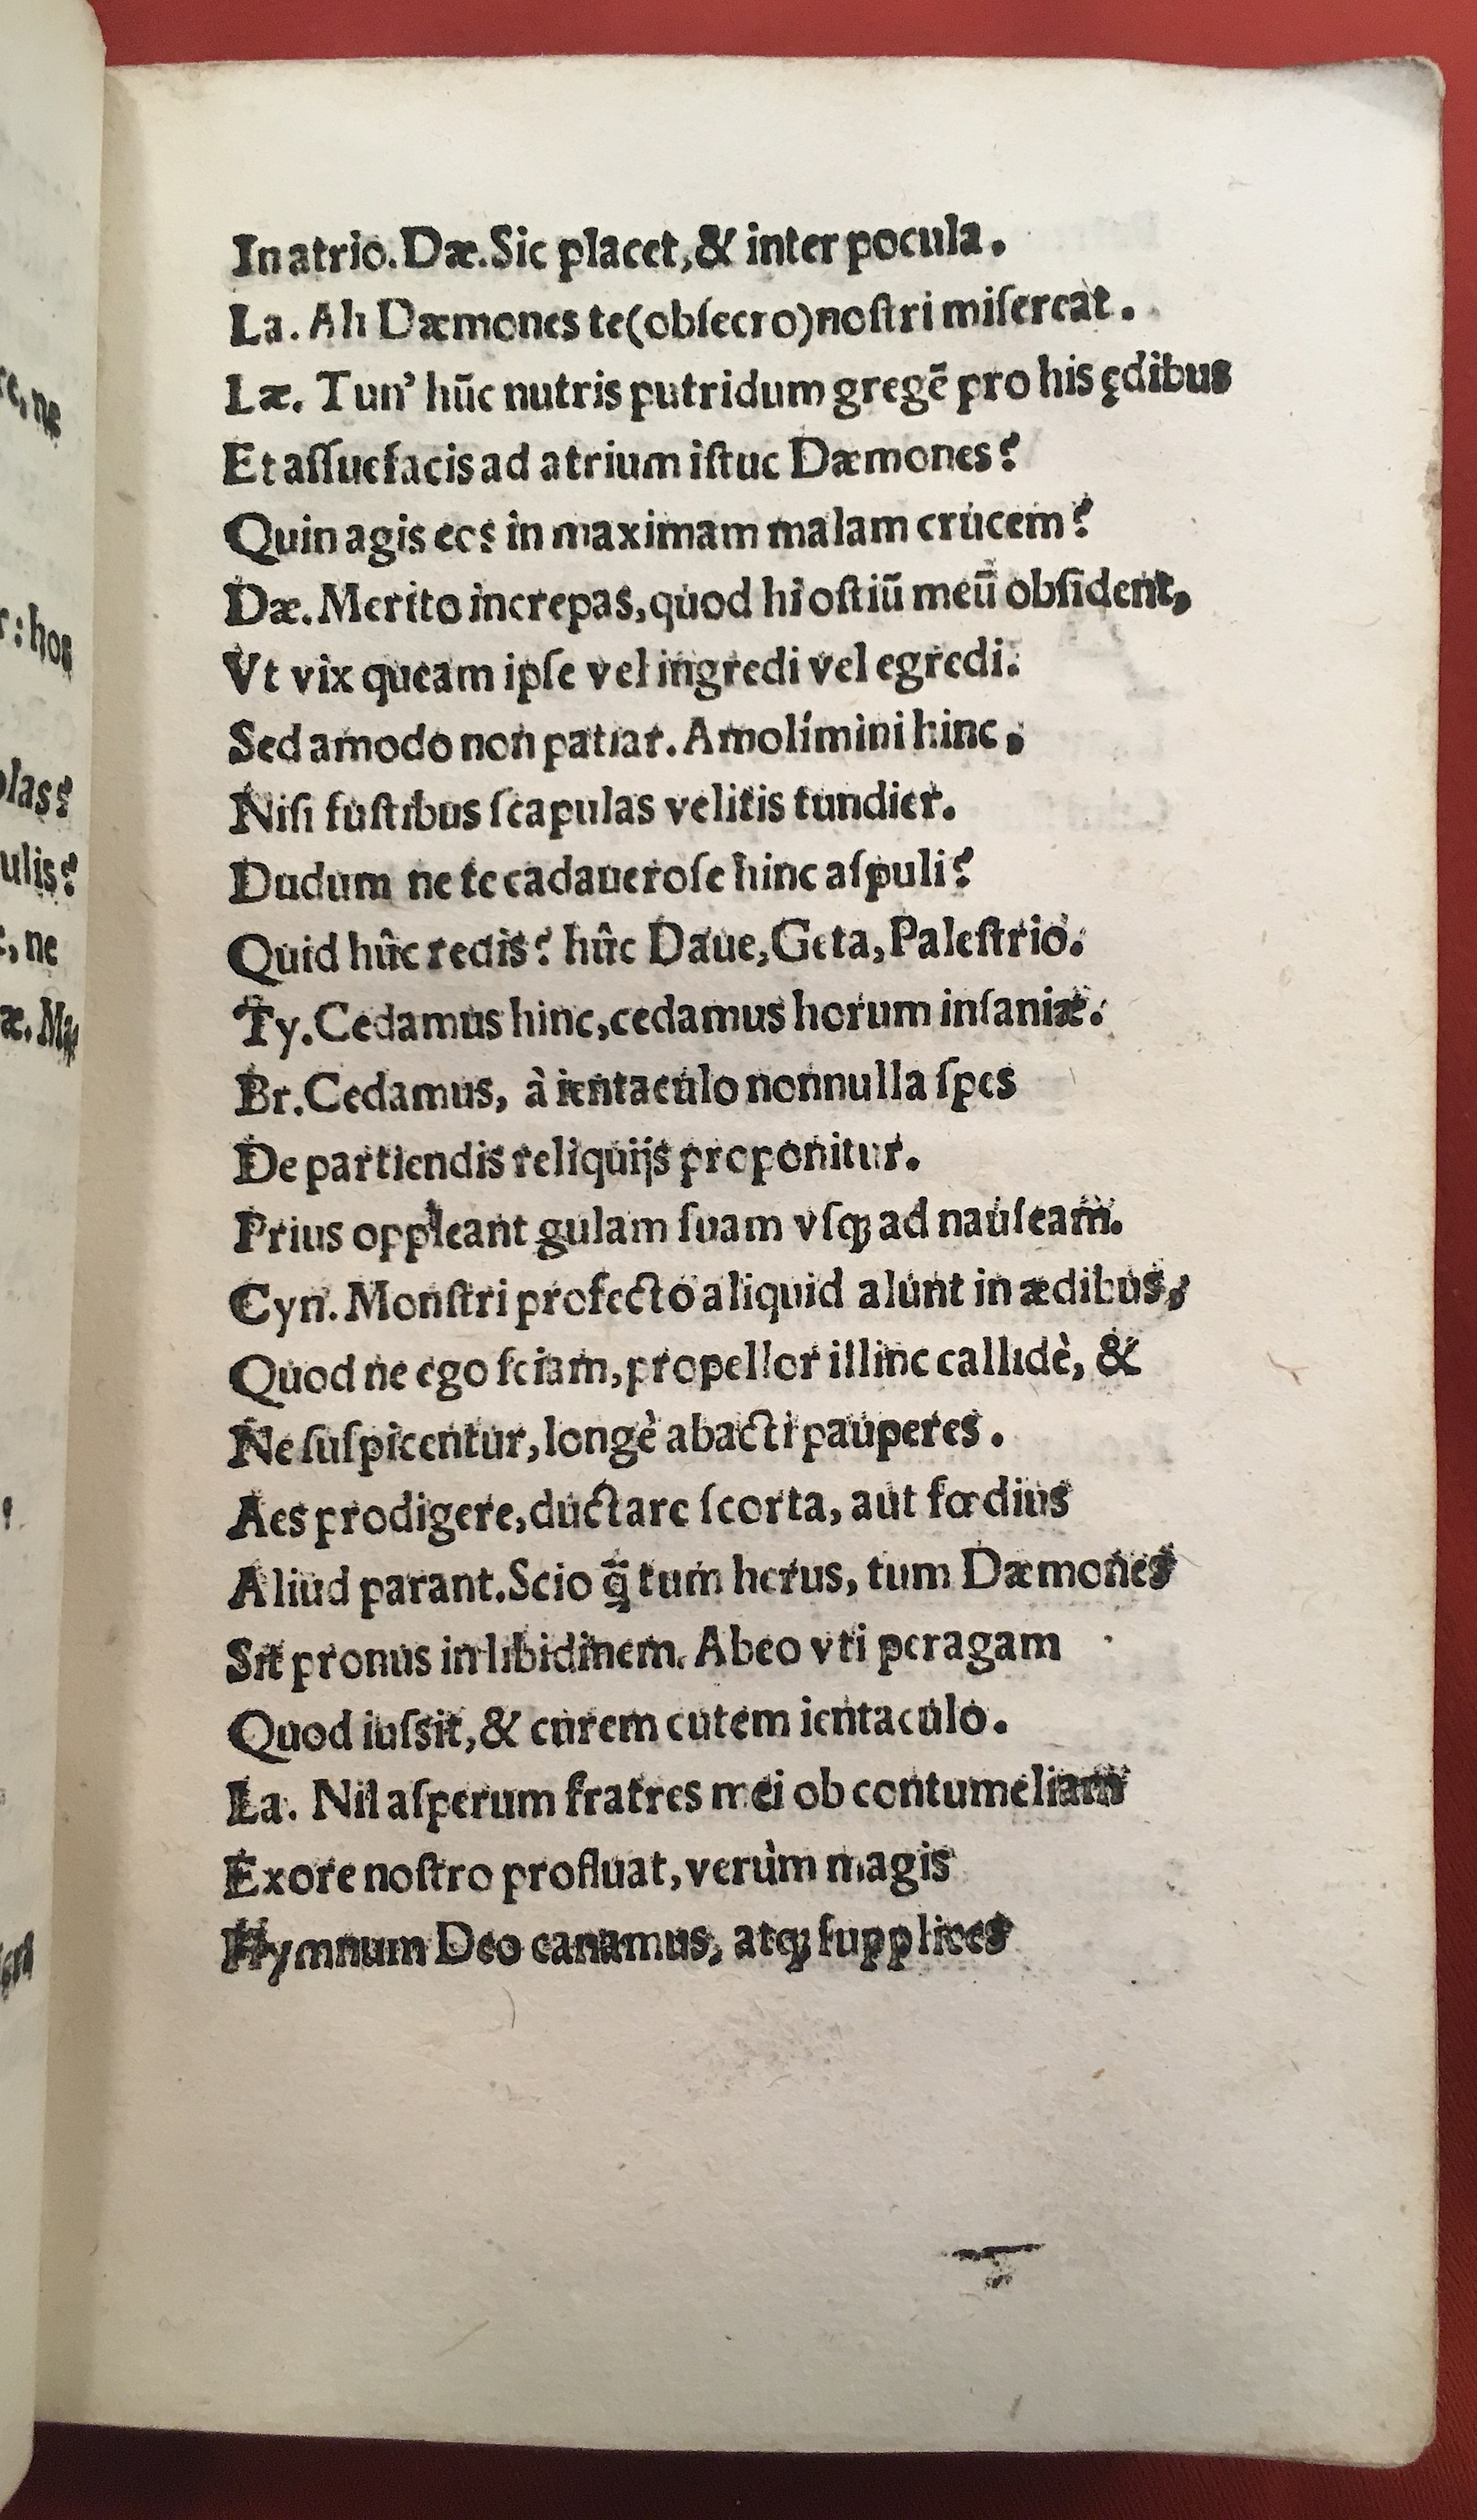 In atrio. Dæ. Sic placet, & inter pocula.
La. Ah Dæmones te (obſecro) noſtri miſereat.
Læ. Tun' hūc nutris putridum gregē pro his ędibus
Et aſſuefacis ad atrium iſtuc Dæmones?
Quin agis eos in maximam malam crucem?
Dæ. Merito increpas, quod hi oſtiū meū obſident,
Vt vix queam ipſe vel ingredi vel egredi.
Sed amodo non patiar. Amolímini hinc,
Niſi fuſtibus ſcapulas velitis tundier.
Dudum ne te cadaueroſe hinc aſpuli?
Quid hûc redis? hûc Daue, Geta, Paleſtrio.
Ty. Cedamus hinc, cedamus horum inſaniæ.
Br. Cedamus, à ientaculo nonnulla ſpes
De partiendis reliquijs proponitur.
Prius oppleant gulam ſuam vſqꝫ ad nauſeam.
Cyn. Monſtri profecto aliquid alunt in ædibus,
Quod ne ego ſciam, propellor illinc callidè, &
Ne ſuſpicentur, longè abacti pauperes.
Aes prodigere, ductare ſcorta, aut fœdius
Aliud parant. Scio q̄ tum herus, tum Dæmones
Sit pronus in libidinem. Abeo vti peragam
Quod iuſsit, & curem cutem ientaculo.
La. Nil aſperum fratres mei ob contumeliam
Ex ore noſtro profluat, verùm magis
Hymnum Deo canamus, atqꝫ ſupplices